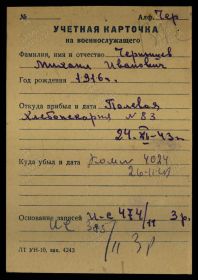 № Алф. Чер
УЧЕТНАЯ КАРТОЧКА
на военнослужащего
Фамилия, имя и отчество
Михаил Иванович
Год рождения 1916 г.
Откуда прибыл и дата Полевая
Хлебопекарня № 83
24.XI-43 г.
Куда убыл и дата
Основание записей 474/11 3 р.
11 3 р
ЛТ УН-10, зак. 4243